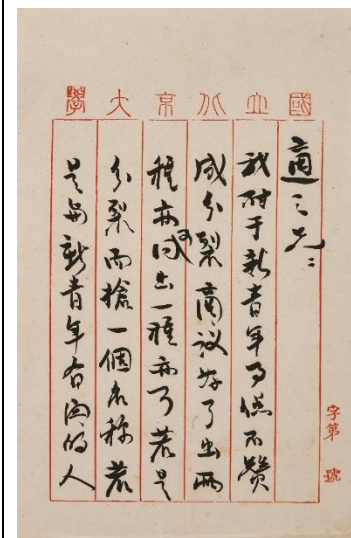 國立北京大學
適之兄：
我对于新青年事縂不贊
成分裂商议好了出兩
種亦可或出一種亦可若是
分裂而搶一個名称若
是與新青年有関的人
字第　號